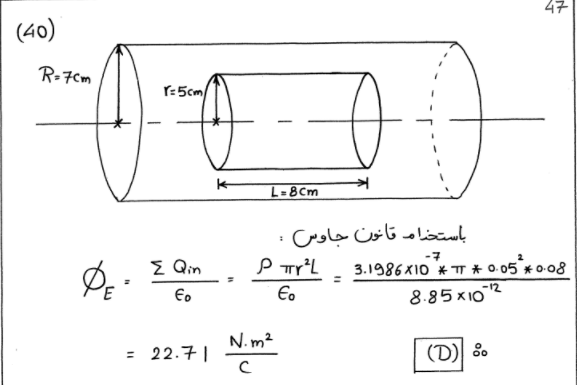 47
(40)
R=7cm
r=5cm
L=8cm
باستخدام قانون جاوس :
Ø_E = Σ Qin / ε₀ = ρ πr²L / ε₀ = 3.1986×10⁻⁷ * π * 0.05² * 0.08 / 8.85×10⁻¹²
= 22.71 N.m² / C
(D) ஃ